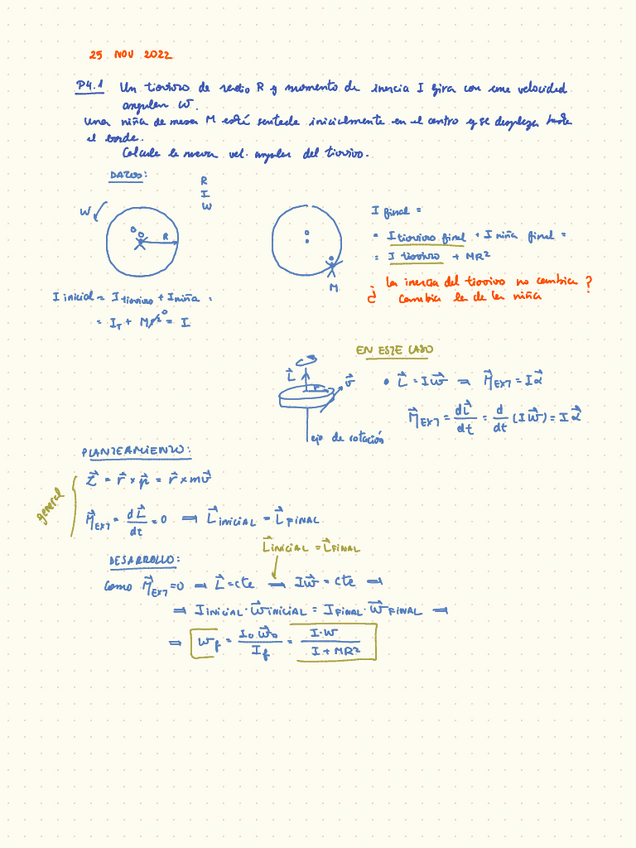 25 NOV 2022
P4.1 Un tiovivo de radio R y momento de inercia I gira con una velocidad
angular W.
Una niña de masa M está sentada inicialmente en el centro y se desplaza hasta
el borde.
Calcula la nueva vel. angular del tiovivo.
DATOS:
R
I
W
W
R
M
I final =
= I tiovivo final + I niña final =
= I tiovivo + MR²
¿ La inercia del tiovivo no cambia ?
Cambia la de la niña
I inicial = I tiovivo + I niña =
= I_T + M r² 0 = I
EN ESTE CASO
L⃗
r
v⃗
eje de rotación
• L⃗ = Iw⃗ ⇒ M⃗EXT = Iα⃗
M⃗EXT = dL⃗/dt = d/dt (Iw⃗) = Iα⃗
PLANTEAMIENTO:
general
L⃗ = r⃗ × p⃗ = r⃗ × mv⃗
M⃗EXT = dL⃗/dt = 0 ⇒ L⃗INICIAL = L⃗FINAL
L⃗INICIAL = L⃗FINAL
DESARROLLO:
Como M⃗EXT = 0 → L⃗ = cte → Iw⃗ = cte ⇒
⇒ I INICIAL · w⃗ INICIAL = I FINAL · w⃗ FINAL ⇒
⇒ W_f = I₀ w⃗₀ / I_f = I·W / I + MR²